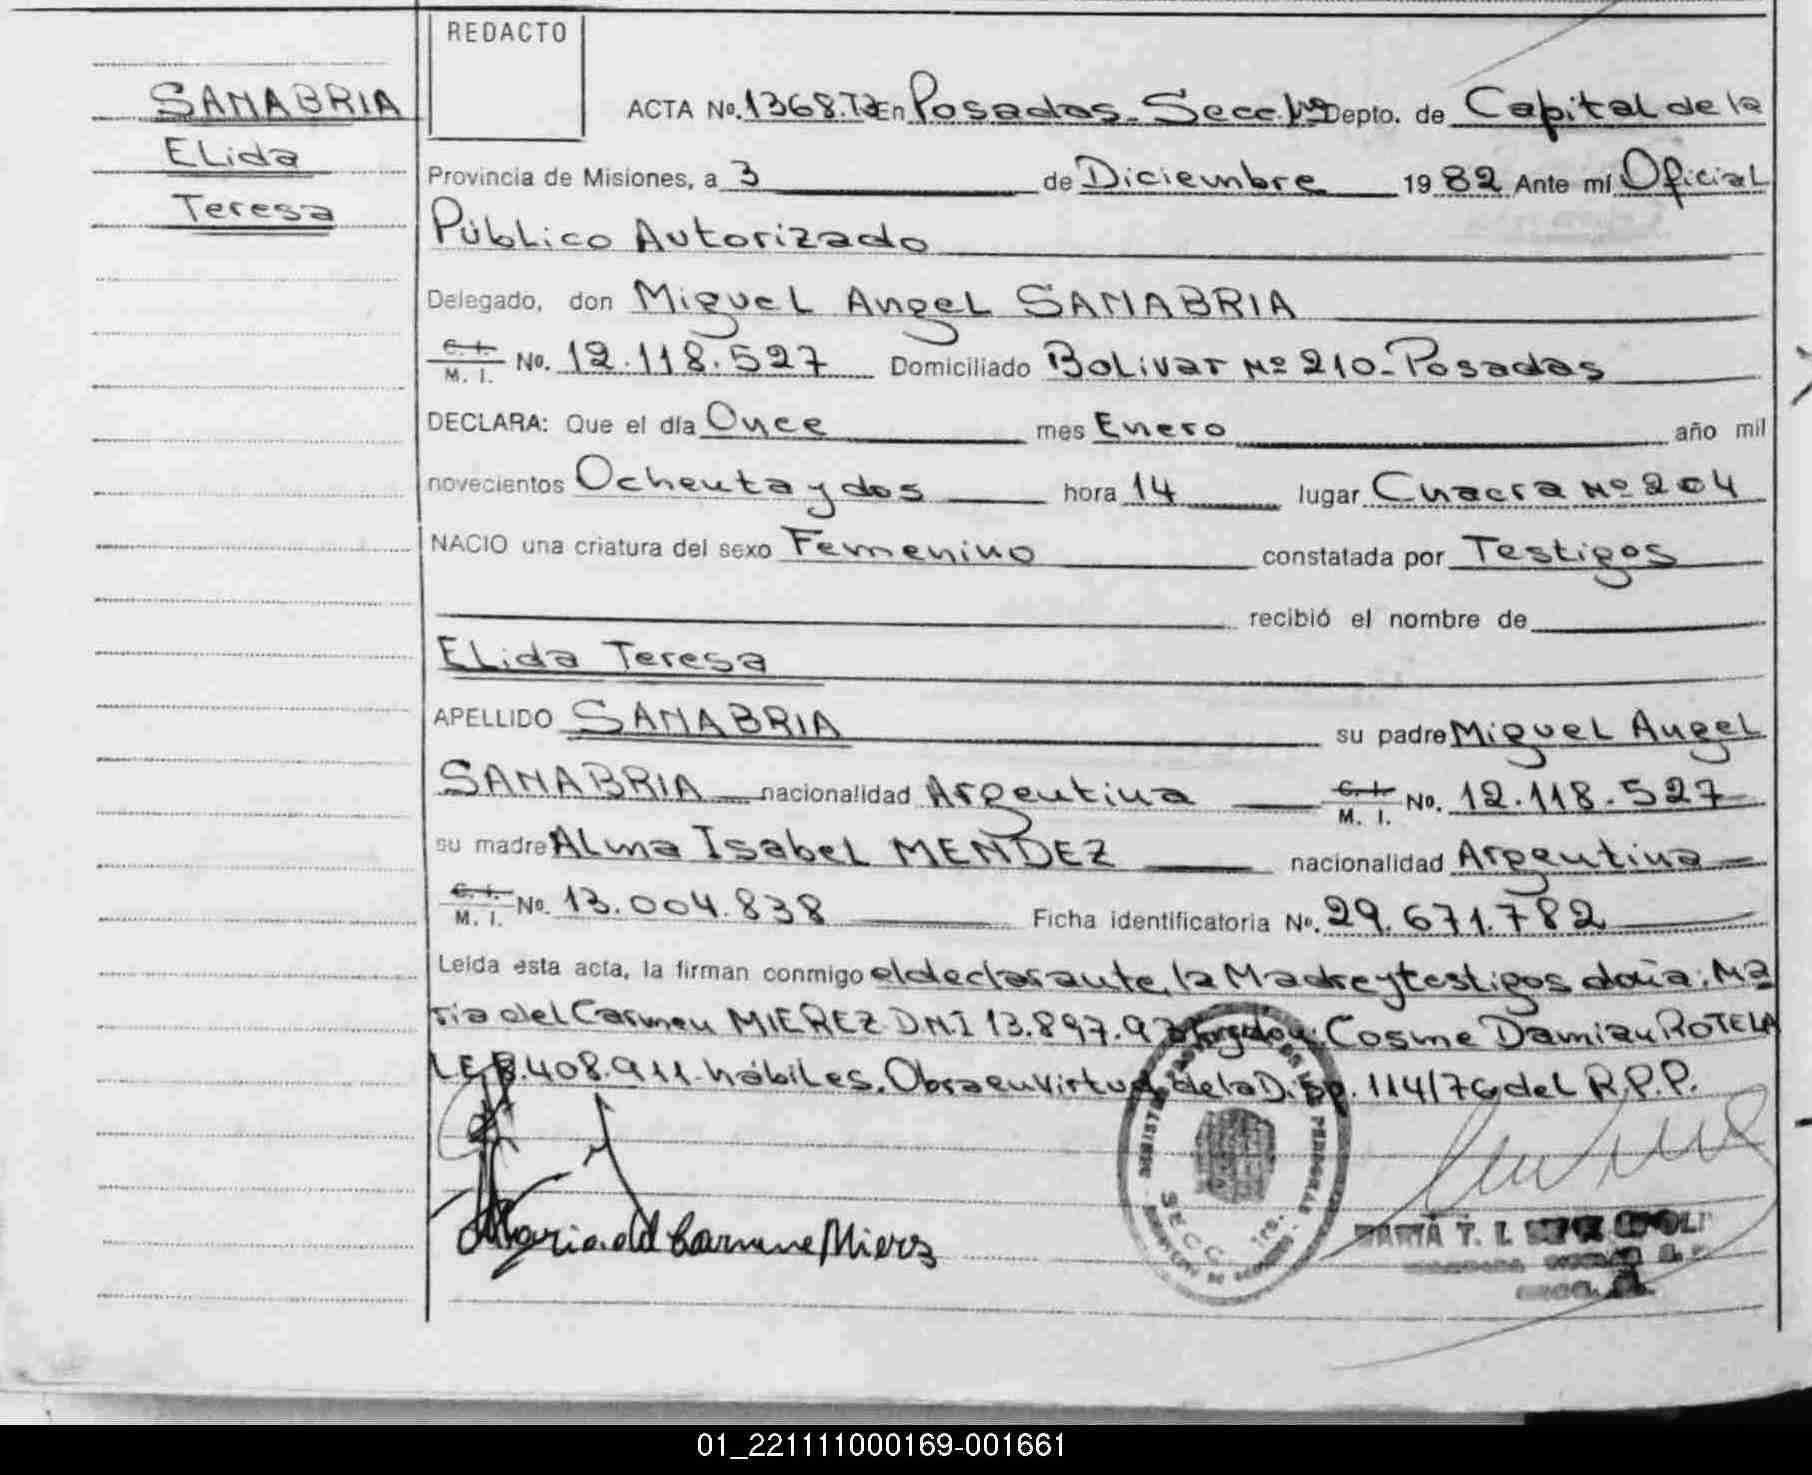 REDACTO
SANABRIA
ELida
Teresa
ACTA No. 1368.T2 En Posadas. Secc. 1ra Depto. de Capital de la
Provincia de Misiones, a 3 de Diciembre 1982 Ante mí Oficial
Público Autorizado
Delegado, don Miguel Angel SANABRIA
C. I. M. I. No. 12.118.527 Domiciliado Bolivar Nº 210-Posadas
DECLARA: Que el día Once mes Enero año mil
novecientos Ochenta y dos hora 14 lugar Chacra Nº 204
NACIO una criatura del sexo Femenino constatada por Testigos
recibió el nombre de
ELida Teresa
APELLIDO SANABRIA su padre Miguel Angel
SANABRIA nacionalidad Argentina C. I. M. I. No. 12.118.527
su madre Alma Isabel MENDEZ nacionalidad Argentina
C. I. M. I. No. 13.004.838 Ficha identificatoria No. 29.671.782
Leída esta acta, la firman conmigo el declarante, la Madre y testigos doña: Ma
ria del Carmen MIEREZ DNI 13.897.9 y don: Cosme Damian ROTELA
LE 8.408.911-hábiles. Obra en virtud de la Disp. 114/76 del R.P.P.
Maria del Carmen Mierz
SECC. 1ra.
MARTA T.
01_221111000169-001661